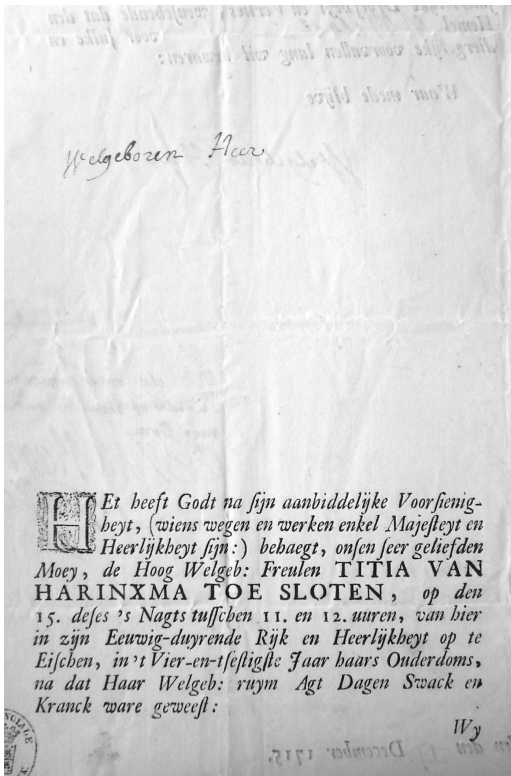 Welgeboren Heer
HEt heeft Godt na ſijn aanbiddelijke Voorſienig-
heyt, (wiens wegen en werken enkel Majeſteyt en
Heerlijkheyt ſijn:) behaegt, onſen ſeer geliefden
Moey, de Hoog Welgeb: Freulen TITIA VAN
HARINXMA TOE SLOTEN, op den
15. deſes 's Nagts tuſſchen 11. en 12. uuren, van hier
in zijn Eeuwig-duyrende Rijk en Heerlijkheyt op te
Eiſchen, in 't Vier-en-tſeſtigſte Jaar haars Ouderdoms,
na dat Haar Welgeb: ruym Agt Dagen Swack en
Kranck ware geweeſt:
Wy